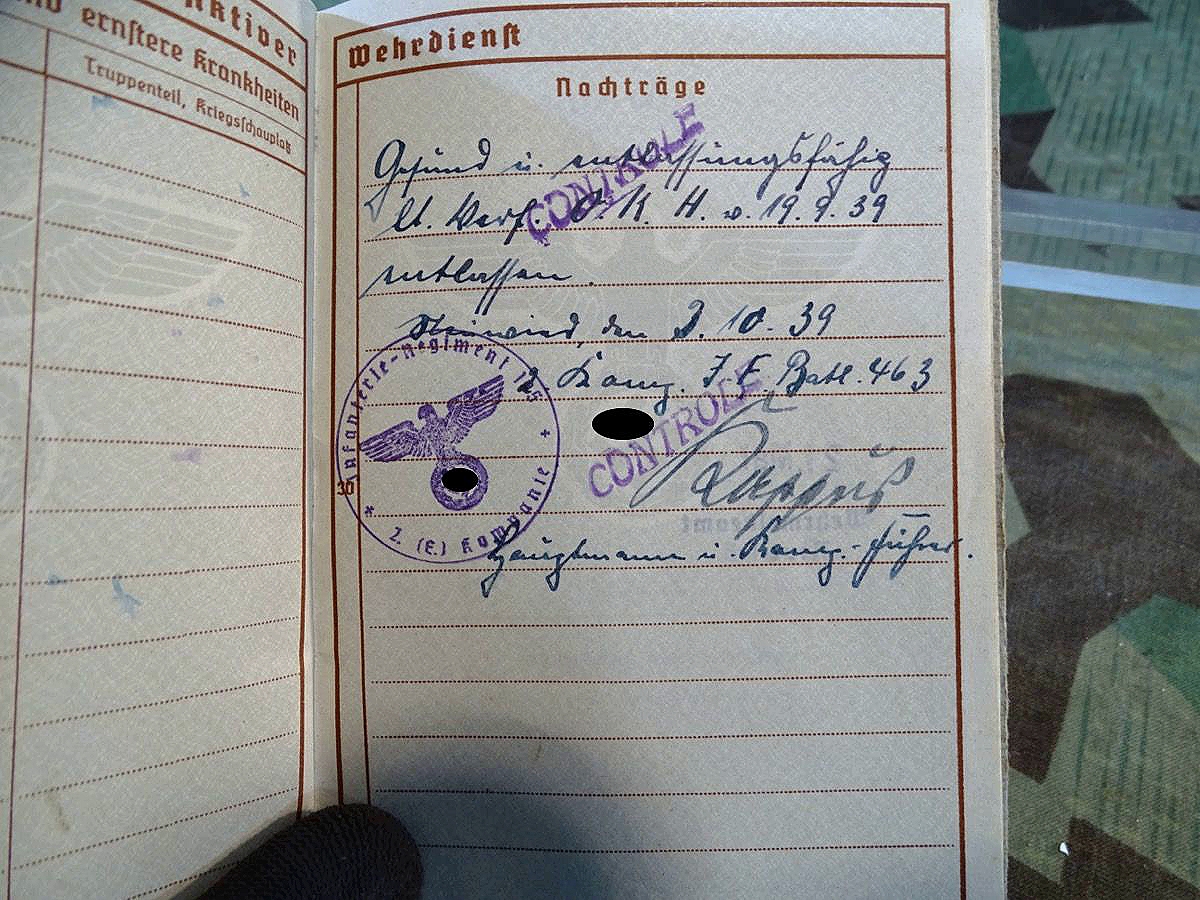 Aktiver
und ernstere Krankheiten
Truppenteil, Kriegsschauplatz
Wehrdienst
Nachträge
Gesund u. entlassungsfähig
lt. Verf. O. K. H. v. 19. 9. 39
entlassen.
den 3. 10. 39
2. Komp. I. E. Batl. 463
CONTROLE
CONTROLE
Infanterie-Regiment 115
2. (E.) Kompanie
36
Hauptmann u. Komp.-Führer.